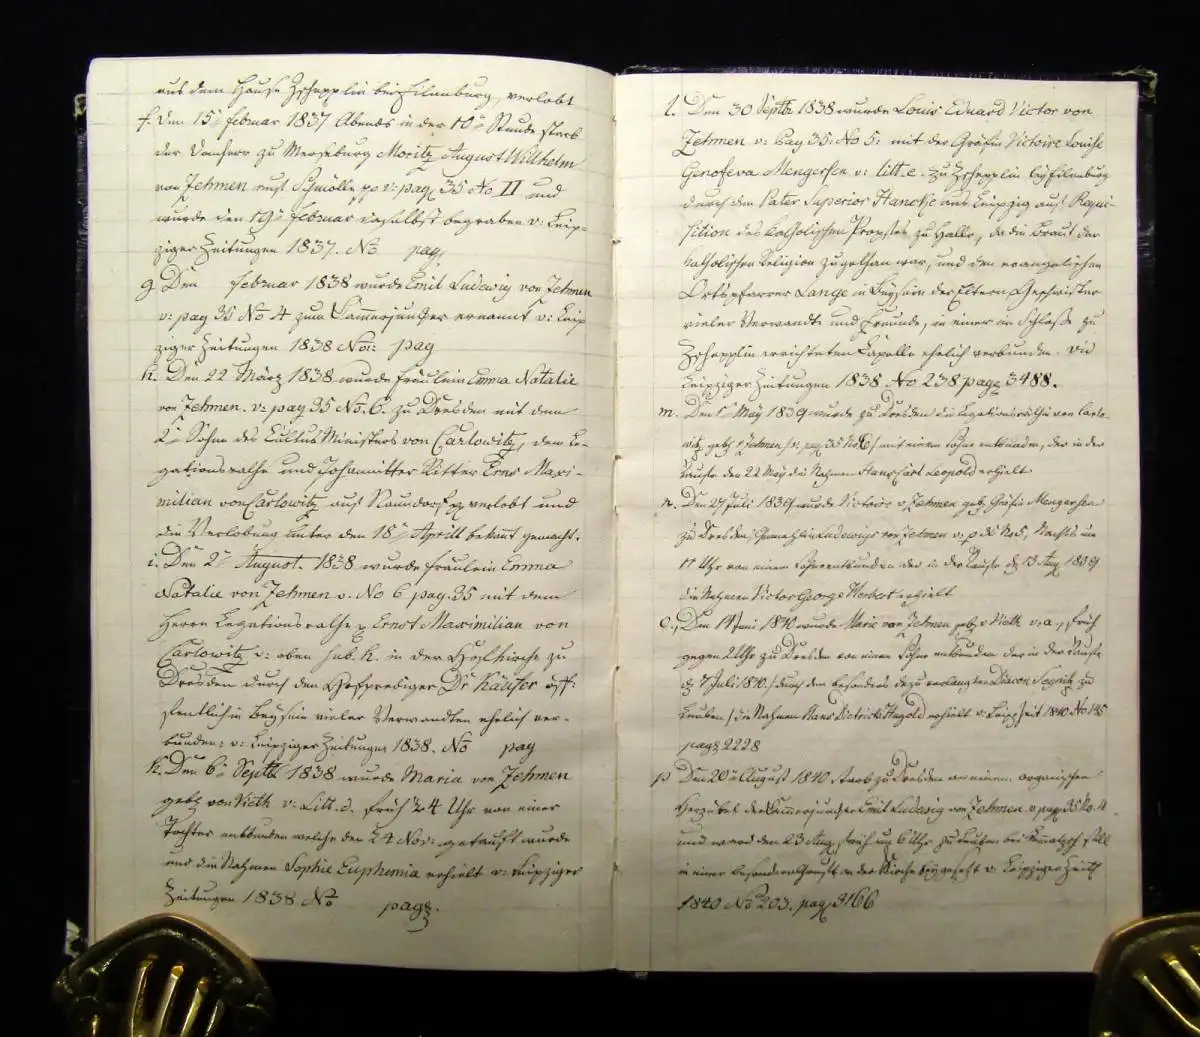 aus dem Hause Zschepplin bei Eilenburg, verlobt
f. Den 15n Februar 1837 Abends in der 10n Stunde starb
der Domherr zu Merseburg Moritz August Wilhelm
von Zehmen auf Schmölln pp v: pag. 35 No II und
wurde den 19n Februar daselbst begraben v: Leip-
ziger Zeitungen 1837. No pag.
g Den Februar 1838 wurde Emil Ludewig von Zehmen
v: pag 35 No 4 zum Cammerjunker ernannt v: Leip
ziger Zeitungen 1838 No: pag
h. Den 22 März 1838 wurde Fräulein Emma Natalie
von Zehmen. v: pag 35 No. 6. zu Dresden mit dem
2n Sohne des Cultus Ministers von Carlowitz, dem Le-
gationsrathe und Johanniter Ritter Ernst Maxi-
milian von Carlowitz auf Naundorf verlobt und
die Verlobung unter den 18n Aprill bekant gemacht.
i. Den 2n August. 1838 wurde Fräulein Emma
Natalie von Zehmen v. No 6 pag. 35 mit dem
Herrn Legationsrathe Ernst Maximilian von
Carlowitz v: oben sub. h. in der Hofkirche zu
Dresden durch den Hofprediger Dr Käufer öff-
fentlich in Beysein vieler Verwandten ehelich ver-
bunden: v: Leipziger Zeitungen 1838. No pag
k. Den 6n Septb 1838 wurde Maria von Zehmen
geb: von Vieth v: Litt. d. früh 24 Uhr von einer
Tochter entbunden welche den 24 Nov: getauft wurde
und die Nahmen Sophie Euphemia erhielt v: Leipziger
Zeitungen 1838 No pag.
l. Den 30 Septbr 1838 wurde Louis Eduard Victor von
Zehmen v: Pag 35: No 5: mit der Gräfin Victoire Louise
Genofeva Mengersen v: litt. e. zu Zschepplin bey Eilenburg
durch den Pater Superior Hanke aus Leipzig auf Requi-
sition des katholischen Propstes zu Halle, da die Braut der
katholischen Religion zugethan war, und den evangelischen
Ortspfarrer Lange in Beysein der Eltern, Geschwister
vieler Verwandte und Freunde, in einer im Schloße zu
Zschepplin errichteten Capelle ehelich verbunden. Vid
Leipziger Zeitungen 1838 No 238 pag. 3488.
m. Den 1n May 1839 wurde zu Dresden die Legationsräthin von Carlo-
witz geb: v Zehmen v: pag 35 No 6 mit einem Sohne entbunden, der in der
Taufe den 22 May die Nahmen Hans Carl Leopold erhielt.
n. Den 27 Juli 1839 wurde Victoire v. Zehmen geb. Gräfin Mengersen
zu Dresden, Gemahlin Ludewigs von Zehmen v: p 35 No 5, Nachts um
11 Uhr von einem Sohne entbunden der in der Taufe d 13 Aug. 1839
die Nahmen Victor George Herbert erhielt
o., Den 14 Juni 1840 wurde Marie von Zehmen geb: v Vieth v. a., früh
gegen 2 Uhr zu Dresden von einem Sohne entbunden der in der Taufe
d 7 Juli 1840. durch den besonders dazu verlangten Diacon zu
Leuben die Nahmen Hans Dietrich Hagold erhielt v. Leipz Zeit 1840 No 145
pag 2228
p Den 20n August 1840 starb zu Dresden an einem organischen
Herzübel der Kammerjunker Emil Ludewig von Zehmen. v pag. 35 No. 4
und ward den 23 Aug. früh um 6 Uhr zu Leuben bei still
in einer besondern Gruft an der Kirche beygesetzt v. Leipziger Zeit
1840 No 203. pag 3166